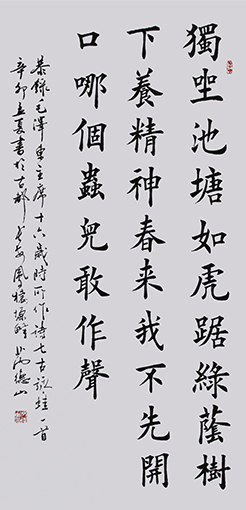 獨坐池塘如虎踞綠蔭樹
下養精神春来我不先開
口哪個蟲兒敢作聲
恭錄毛澤東主席十六歲時所作诗七古詠蛙一首
辛卯立夏書於古都長安鳳棲塬畔